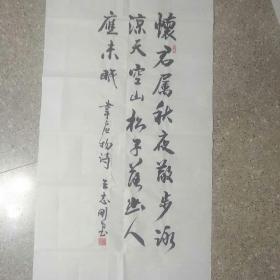 懷君属秋夜散步詠
涼天空山松子落幽人
應未眠
韋應物詩 王志刚書